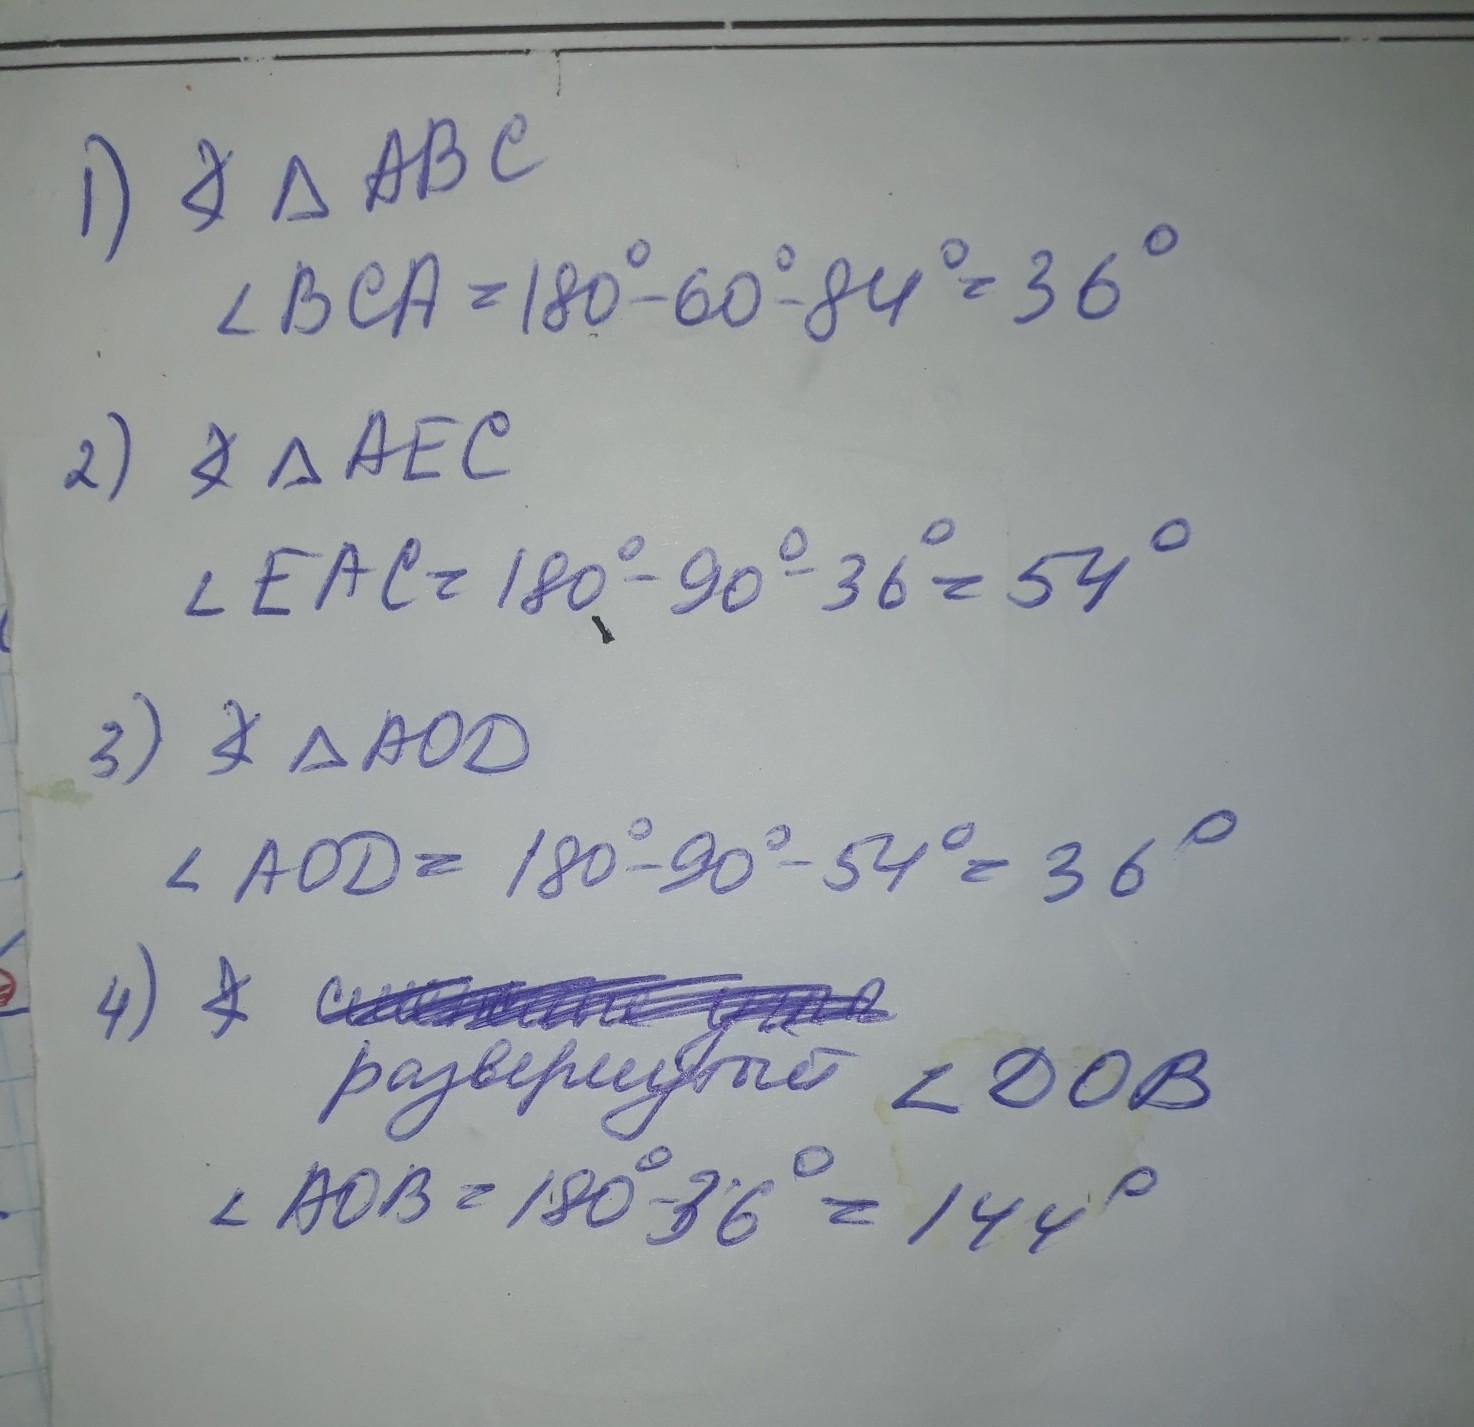 1) ∡ △ ABC
∠BCA = 180° - 60° - 84° = 36°
2) ∡ △ AEC
∠EAC = 180° - 90° - 36° = 54°
3) ∡ △ AOD
∠AOD = 180° - 90° - 54° = 36°
4) ∡
развернутый ∠DOB
∠AOB = 180° - 36° = 144°